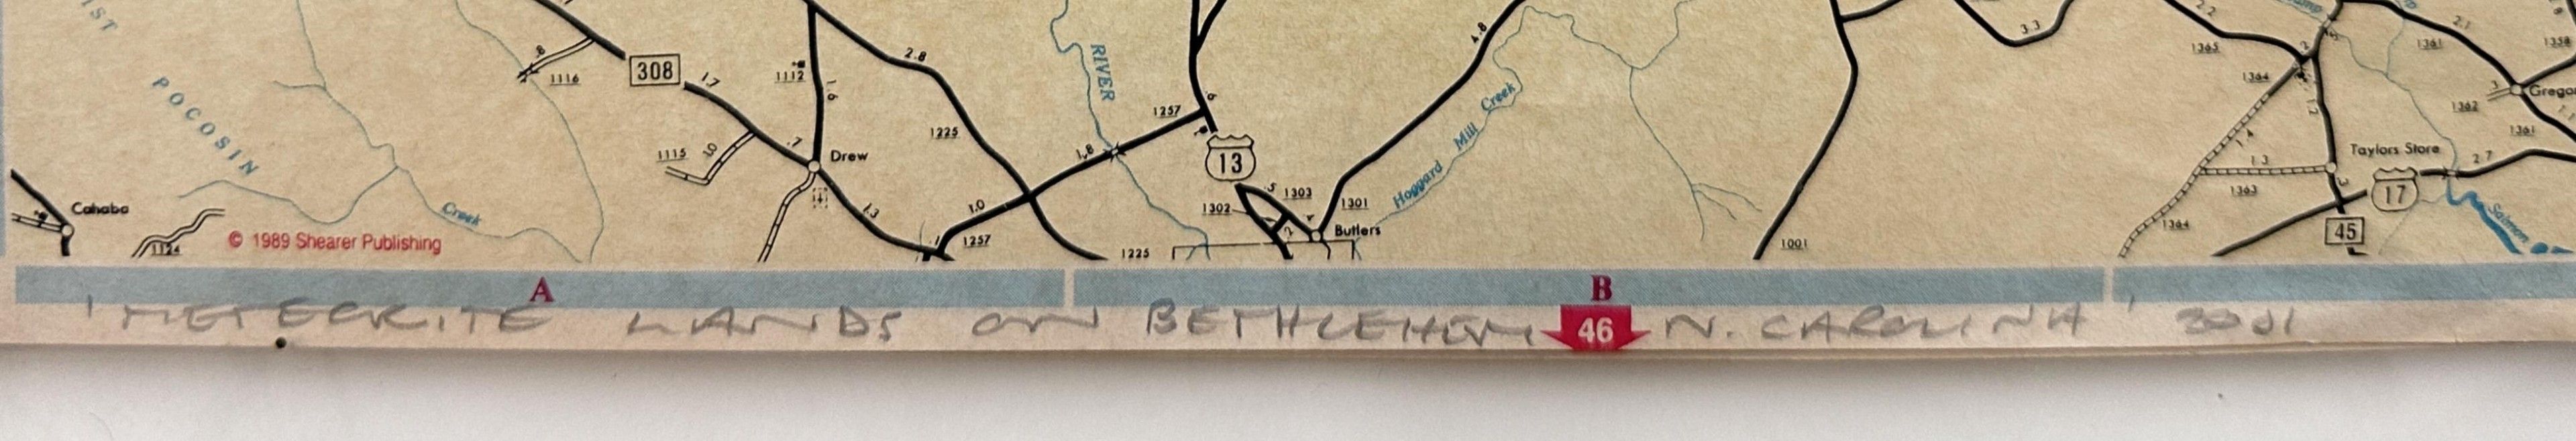 IST
POCOSIN
.8
1116
308
1.7
1112
1.6
2.8
RIVER
1257
.6
4.8
3.3
2.2
1365
2.1
1361
1358
1364
.2
1.2
3
Grego
1362
1361
1225
1115
1.0
.7
Drew
1.8
13
Hoggard Mill Creek
1.4
Taylors Store
2.7
1.3
1363
17
Cahaba
Creek
1.3
1.0
.5
1303
1302
1301
.3
1364
Salmon
© 1989 Shearer Publishing
1124
.1
1257
1225
.2
Butlers
1001
45
A
B
'METEORITE LANDS ON BETHLEHEM N. CAROLINA' 2001
46